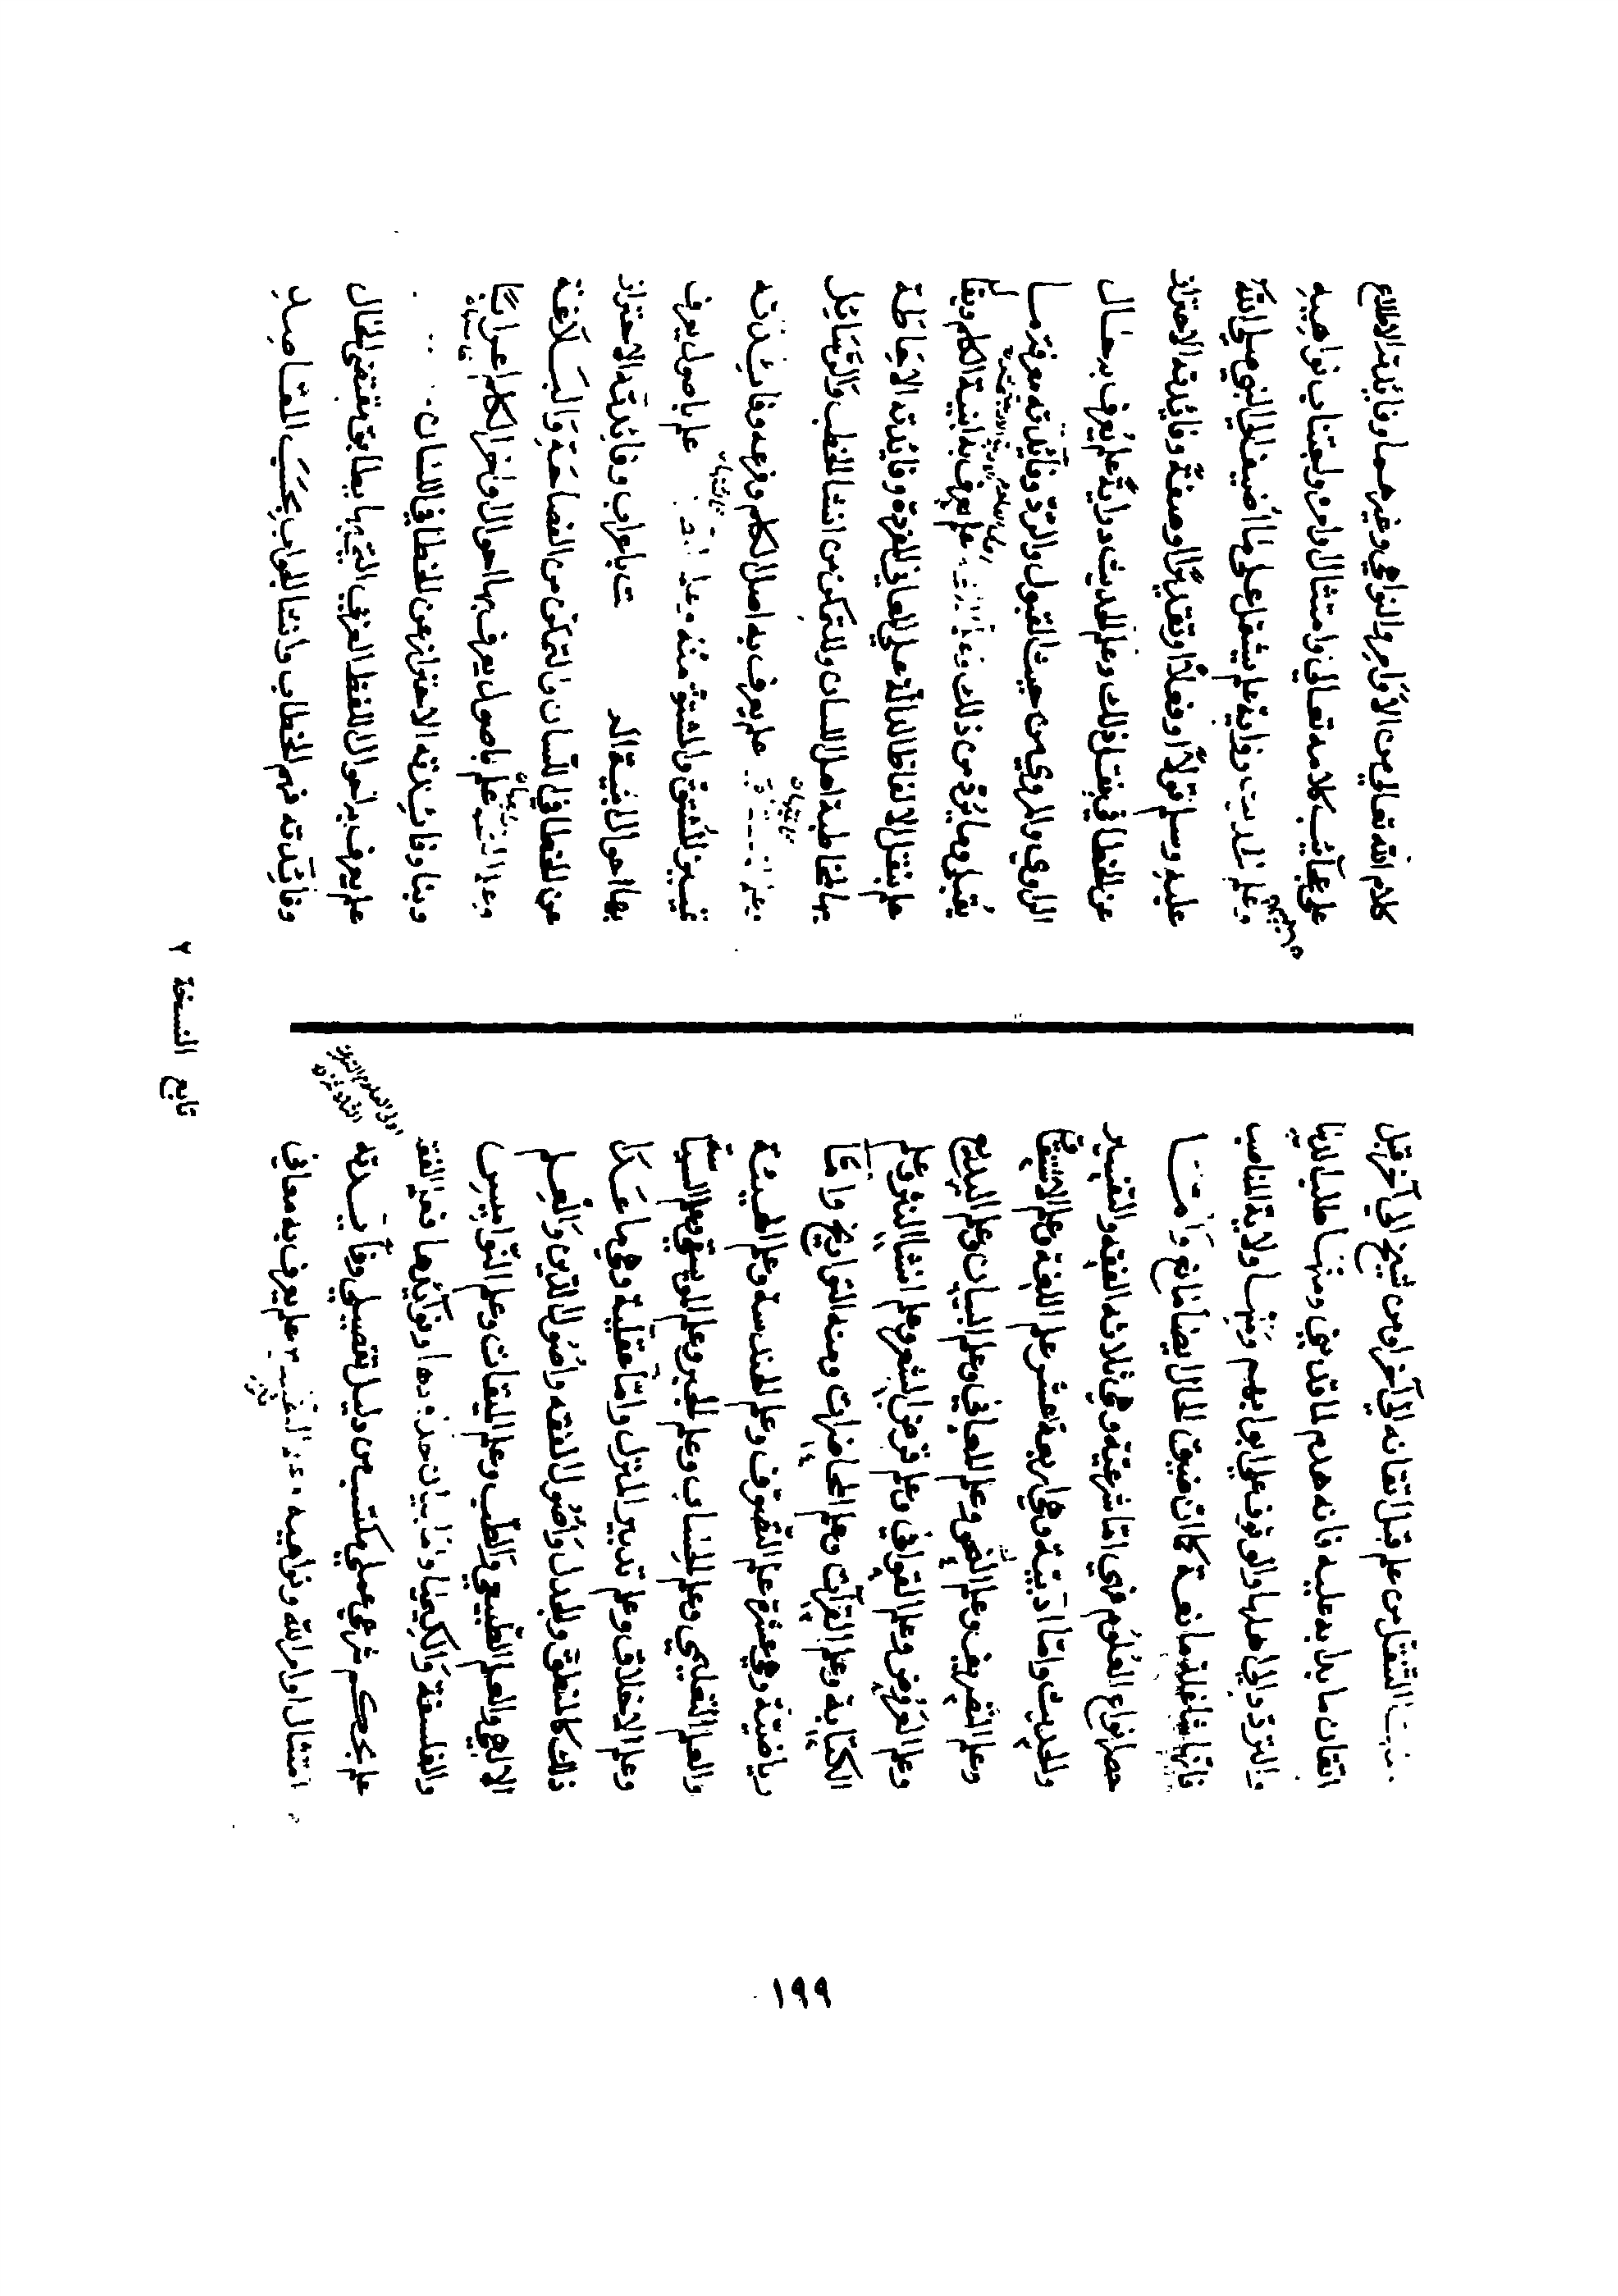 التنقل من علم قبل اتقانه الي آخر او من شيخ الي آخر قبل
اتقان ما بدا به عليه فانه هدم لما قد بني ومنها طلب الدنيا
والتردد الي اهلها والوقوف علي ابوابهم ومنها ولاية المناصب
فانها شاغلة مانعة كما ان ضيق الحال ايضا مانع
حصر انواع العلوم فهي اما شرعية وهي ثلاثه الفقه والتفسير
والحديث واما ادبية وهي اربعة عشر علم اللغة وعلم الاشتقاق
وعلم التصريف وعلم النحو وعلم المعاني وعلم البيان وعلم البديع
وعلم العروض وعلم القوافي وعلم قرض الشعر وعلم انشا النثر وعلم
الكتابة وعلم القرآت وعلم المحاضرات ومنه التواريخ واما
رياضية وهي عشرة علم التصوف وعلم الهندسة وعلم الهيئة
والعلم التعليمي وعلم الحساب وعلم الجبر وعلم الموسيقي وعلم السياسة
وعلم الاخلاق وعلم تدبير المنزل واما عقلية وهي ما عدا
ذلك كالمنطق والجدل واصول الفقه واصول الدين والعلم
الالهي والعلم الطبيعي والطب وعلم الميقات وعلم النواميس
والفلسفة والكيميا واما بيان حدودها وفوآئدها فعلم الفقه
علم بحكم شرعي عملي مكتسب من دليل تفصيلي وفآئدته
امتثال اوامر الله ونواهيه التفسير علم يعرف به معاني
كلام الله تعالي من الأوامر والنواهي وغيرهما وفائدته الاطلاع
علي عجآئب كلامه تعالي وامتثال اوامره واجتناب نواهيه
وعلم الحديث رواية علم يشتمل علي ما اضيف الي النبي صلي الله
عليه وسلم قولا او فعلا او تقريرا او صفة وفائدته الاحتراز
عن الخطا في نقل ذلك وعلم الحديث دراية علم يعرف به حال
الراوي والمروي من حيث القبول والرد وفآئدته معرفة ما
يقبل وما يرد من ذلك علم يعرف به ابنية الكلم
علم بنقل الالفاظ الدالة علي المعاني المفردة وفائدته الاحاطة
بها لمخاطبة اهل اللسان وللتمكن من انشا الخطب والرسائل
علم يعرف به اصل الكلم وفرعه وفائدته
تمييز المشتق والمشتق منه علم باصول يعرف
بها احوال الابنية وفائدته الاحتراز
عن الخطا في اللسان والتمكن من الفصاحة والبلاغة
علم باصول يعرف بها احوال اواخر الكلم اعرابا
وبنا وفائدته الاحتراز عن الخطا في اللسان
علم يعرف به احوال اللفظ العربي التي بها يطابق مقتضي الحال
وفآئدته فهم الخطاب وانشا الجواب بحسب المقاصد
تابع النسخة ٢
١٩٩